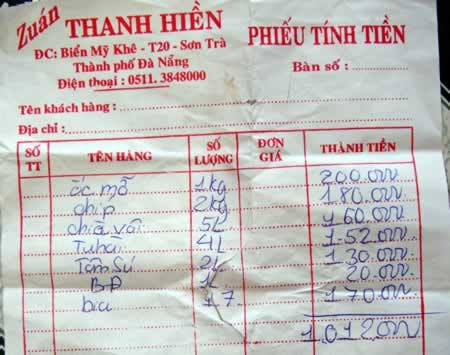 Zuán THANH HIỀN
ĐC: Biển Mỹ Khê - T20 - Sơn Trà
Thành phố Đà Nẵng
Điện thoại : 0511. 3848000
PHIẾU TÍNH TIỀN
Bàn số :
Tên khách hàng :
Địa chỉ :
SỐ TT TÊN HÀNG SỐ LƯỢNG ĐƠN GIÁ THÀNH TIỀN
ốc mỡ 1kg 200.000
chíp 2kg 180.000
chìa vôi 5L 160.000
Tu hai 4L 152.000
Tôm Sú 2L 130.000
BP 1L 20.000
bia 17 170.000
1012000